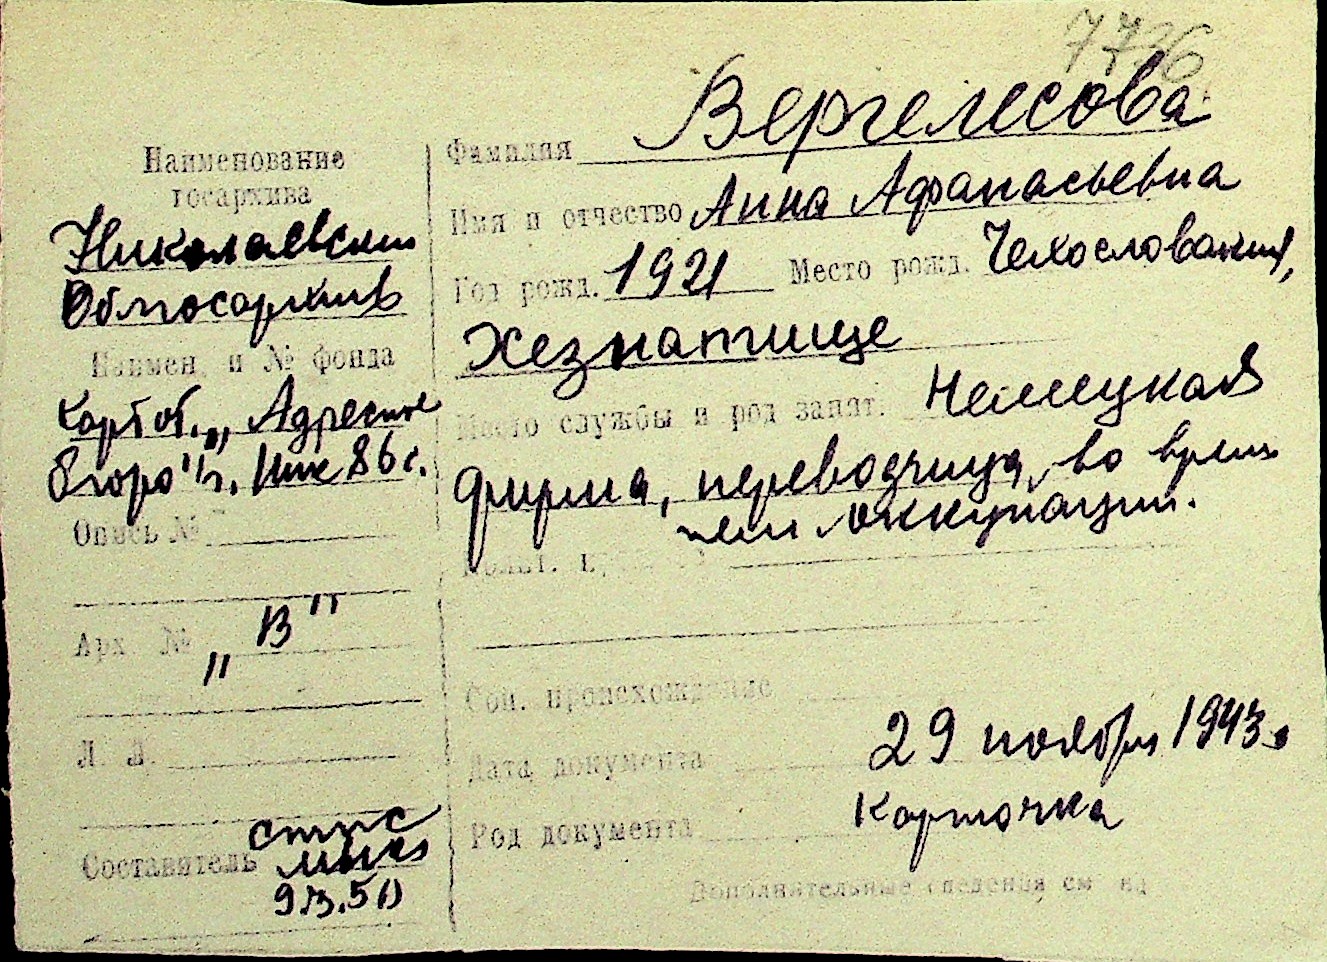 7736
Наименование
госархива
Николаевский
Облгосархив
Наимен. и № фонда
Картот. „Адресное
бюро" г. Ник 86 с.
Опись №
Арх №
„В"
Л. Л.
Составитель
9.3.50
Фамилия Вергелесова
Имя и отчество Анна Афанасьевна
Год рожд. 1921 Место рожд. Чехословакия,
Хезнатище
Место службы и род занят. Немецкая
фирма, переводчица, во время
оккупации.
Соц. происхождение
Дата документа 29 ноября 1943г
Род документа Карточка
Дополнительные сведения см на